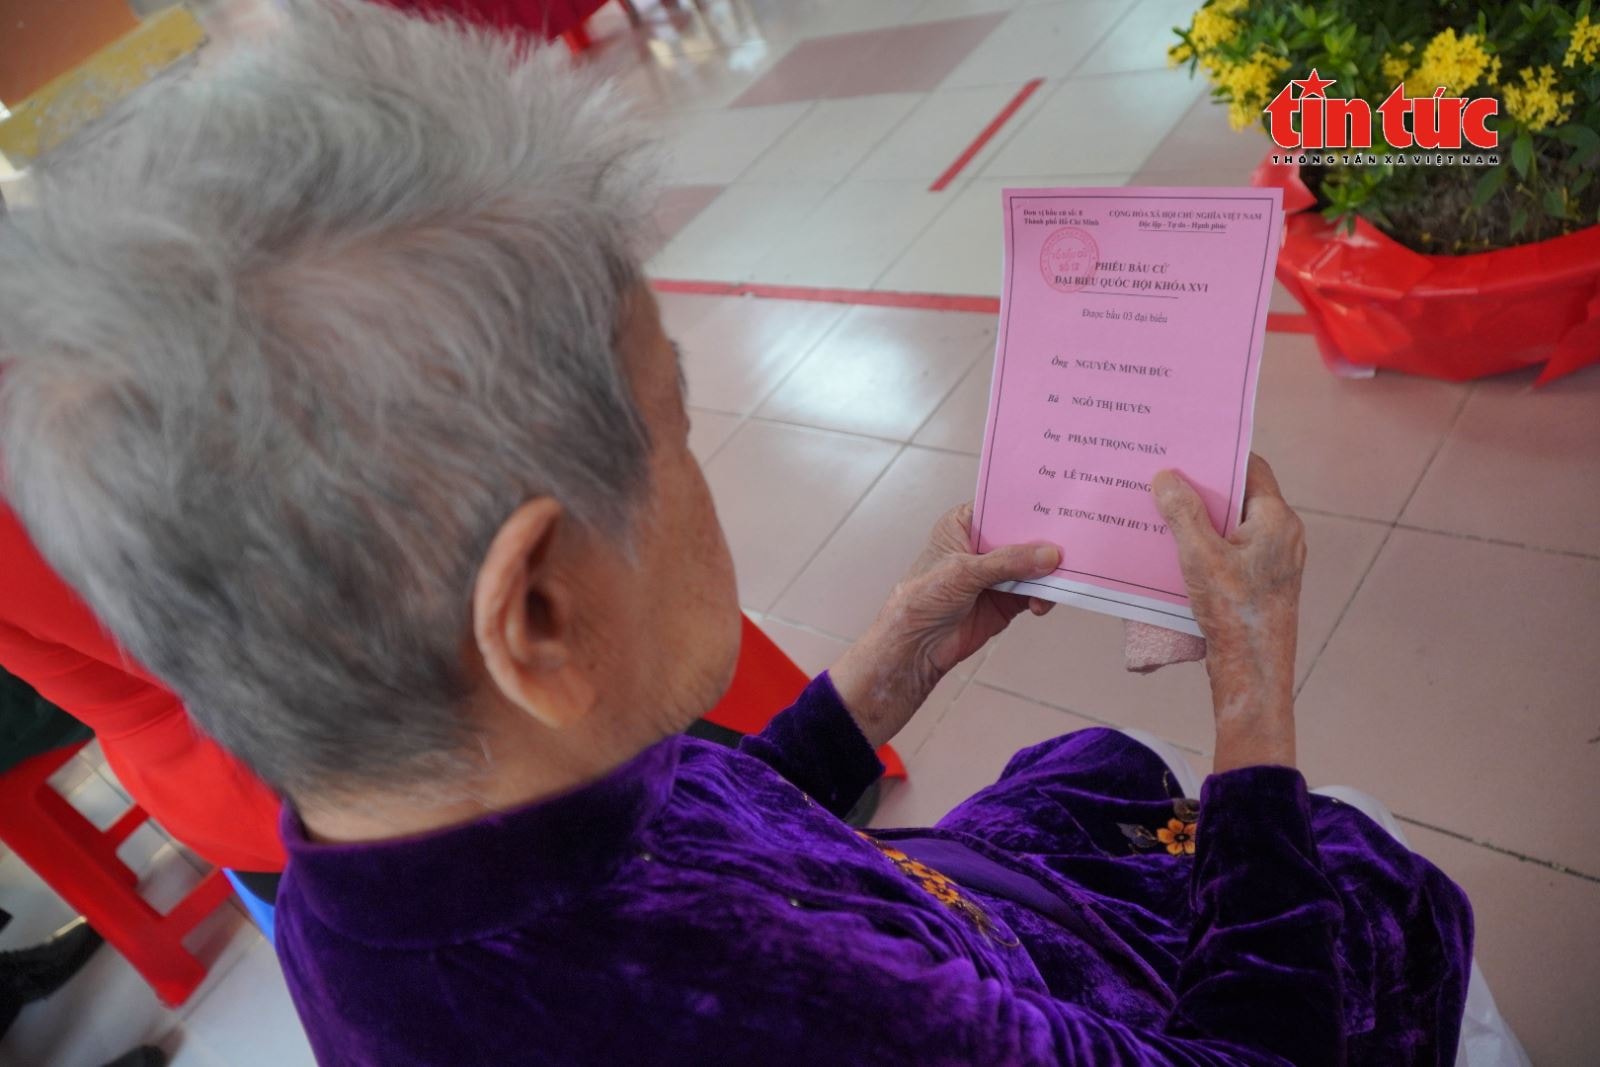 tin tức
THÔNG TẤN XÃ VIỆT NAM
Đơn vị bầu cử số: 8
Thành phố Hồ Chí Minh
CỘNG HÒA XÃ HỘI CHỦ NGHĨA VIỆT NAM
Độc lập - Tự do - Hạnh phúc
TỔ BẦU CỬ
SỐ 12
PHIẾU BẦU CỬ
ĐẠI BIỂU QUỐC HỘI KHÓA XVI
Được bầu 03 đại biểu
Ông NGUYỄN MINH ĐỨC
Bà NGÔ THỊ HUYỀN
Ông PHẠM TRỌNG NHÂN
Ông LÊ THANH PHONG
Ông TRƯƠNG MINH HUY VŨ